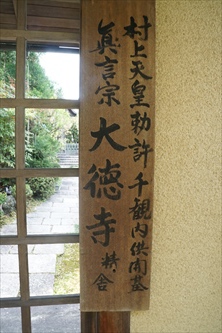 村上天皇勅許千観内供開基
眞言宗大徳寺精舎